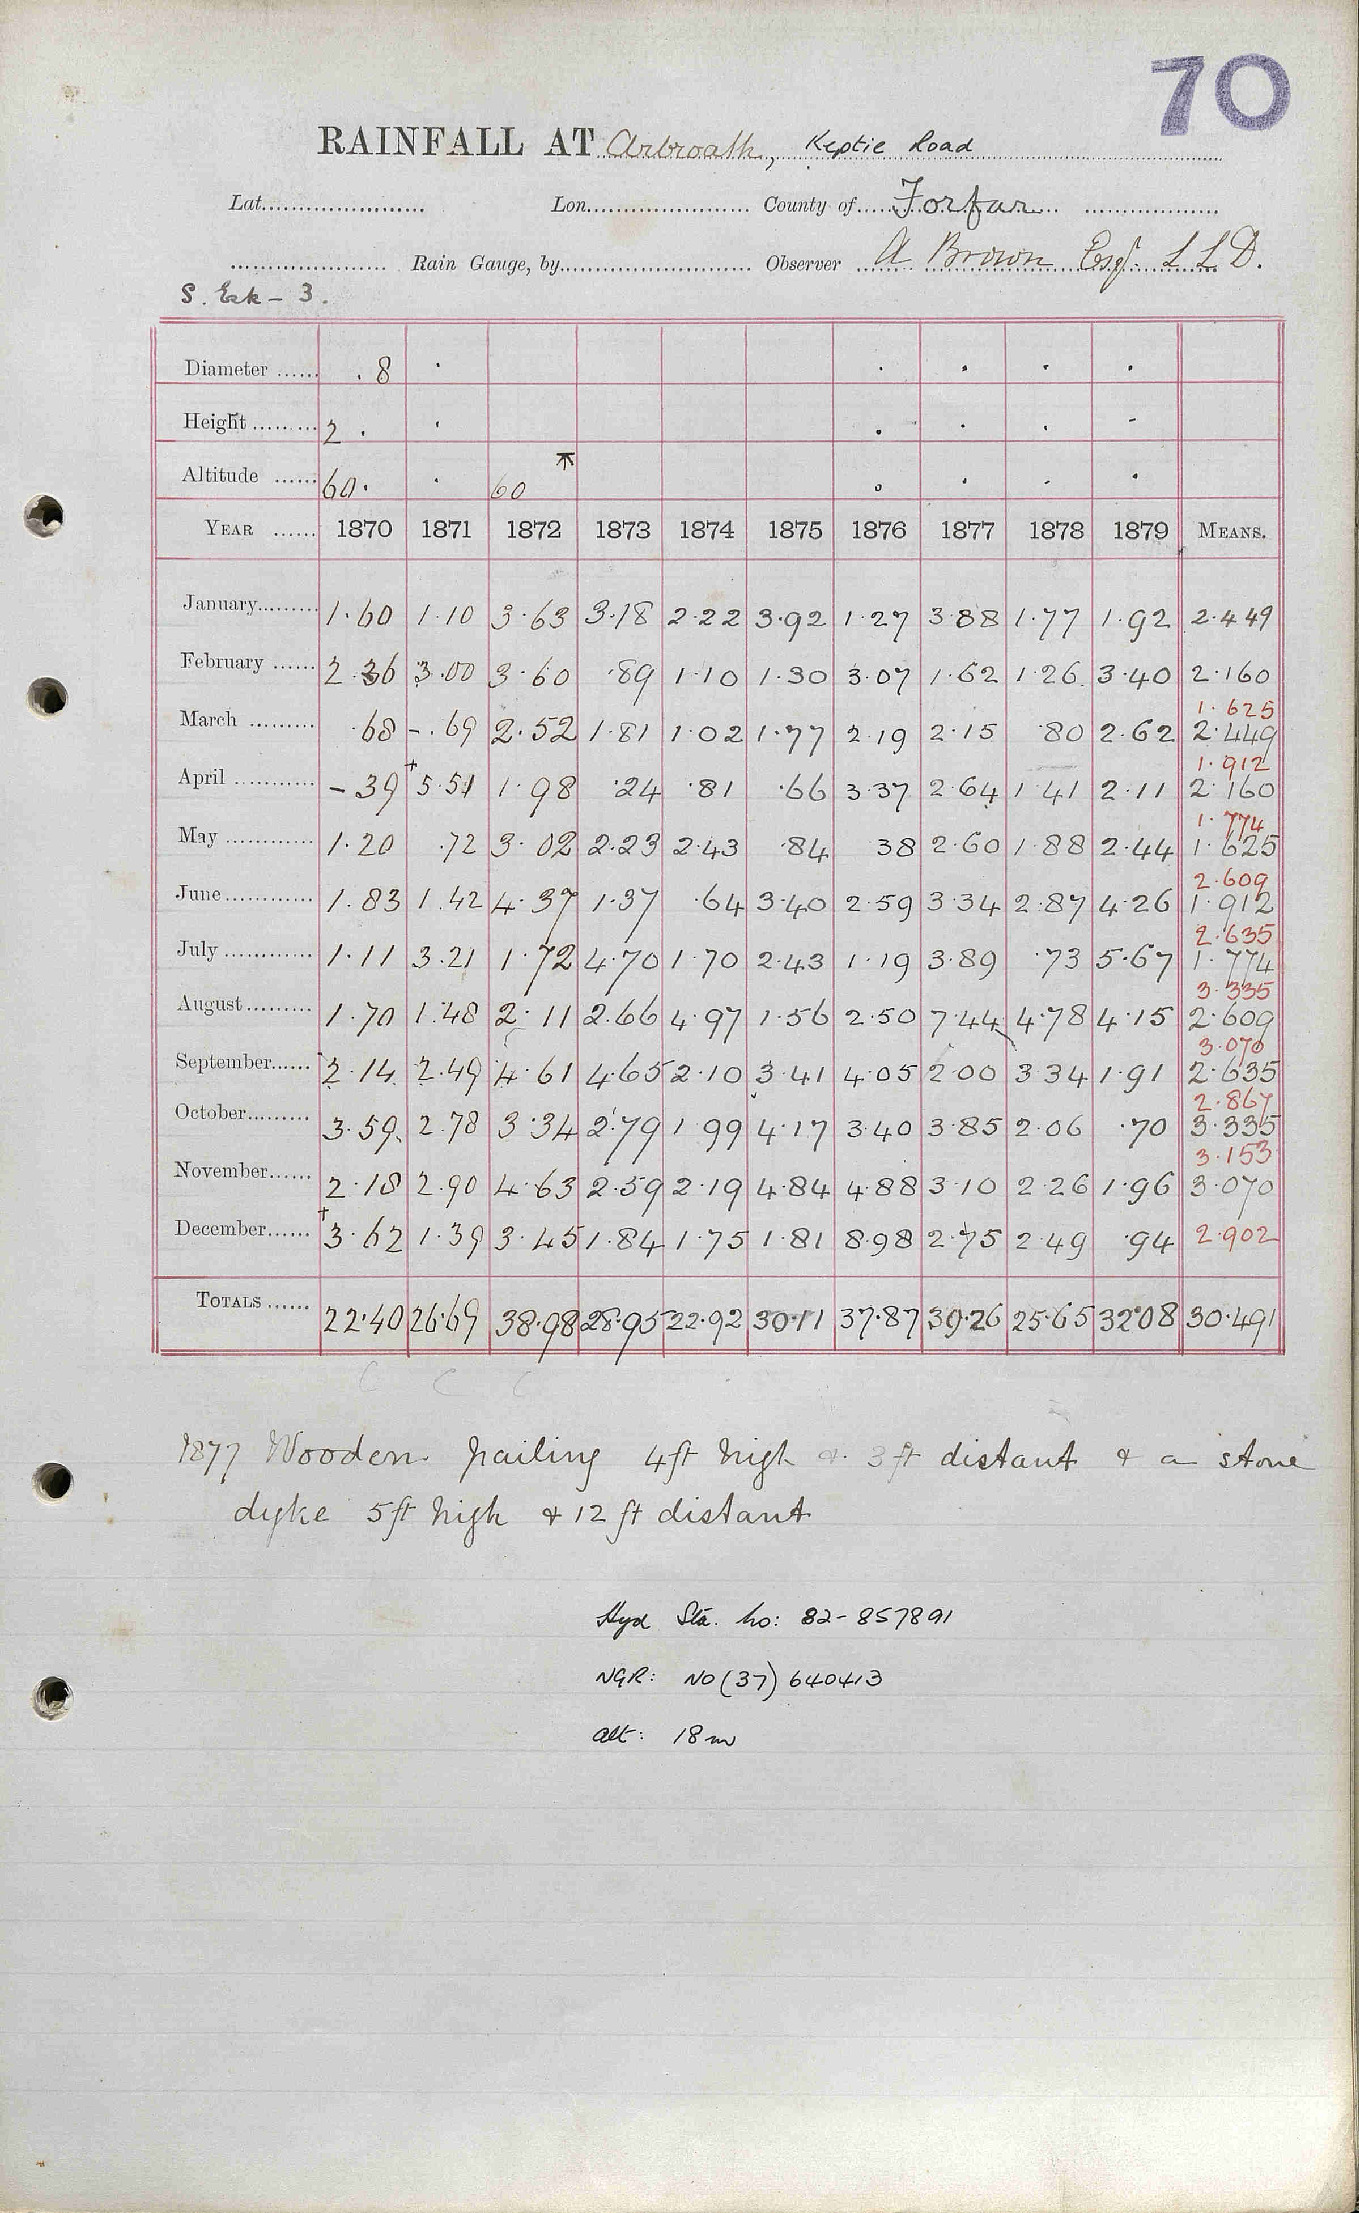 70
RAINFALL AT Arbroath, Keptie Road
Lat. Lon. County of Forfar
Rain Gauge, by Observer A Brown Esq. L L D.
S. Esk - 3.
Diameter ...... .8
Height ......... 2
Altitude ...... 60 60
YEAR ...... 1870 1871 1872 1873 1874 1875 1876 1877 1878 1879 MEANS.
January......... 1.60 1.10 3.63 3.18 2.22 3.92 1.27 3.88 1.77 1.92 2.449
February ...... 2.36 3.00 3.60 .89 1.10 1.30 3.07 1.62 1.26 3.40 2.160
1.625
March ......... .68 -.69 2.52 1.81 1.02 1.77 2.19 2.15 .80 2.62 2.449
1.912
April ............ -39 +5.51 1.98 .24 .81 .66 3.37 2.64 1.41 2.11 2.160
1.774
May ............ 1.20 .72 3.02 2.23 2.43 .84 38 2.60 1.88 2.44 1.625
2.609
June............. 1.83 1.42 4.37 1.37 .64 3.40 2.59 3.34 2.87 4.26 1.912
2.635
July ............. 1.11 3.21 1.72 4.70 1.70 2.43 1.19 3.89 .73 5.67 1.774
3.335
August.......... 1.70 1.48 2.11 2.66 4.97 1.56 2.50 7.44 4.78 4.15 2.609
3.070
September...... 2.14 2.49 4.61 4.65 2.10 3.41 4.05 2.00 3.34 1.91 2.635
2.867
October......... 3.59 2.78 3.34 2.79 1.99 4.17 3.40 3.85 2.06 .70 3.335
3.153
November...... 2.18 2.90 4.63 2.59 2.19 4.84 4.88 3.10 2.26 1.96 3.070
December...... +3.62 1.39 3.45 1.84 1.75 1.81 8.98 2.75 2.49 .94 2.902
TOTALS ...... 22.40 26.69 38.98 28.95 22.92 30.11 37.87 39.26 25.65 32.08 30.491
1877 Wooden pailing 4ft high & 3ft distant & a stone
dyke 5ft high & 12 ft distant
Hyd Sta. No: 82-857891
NGR: NO (37) 640413
Alt: 18m